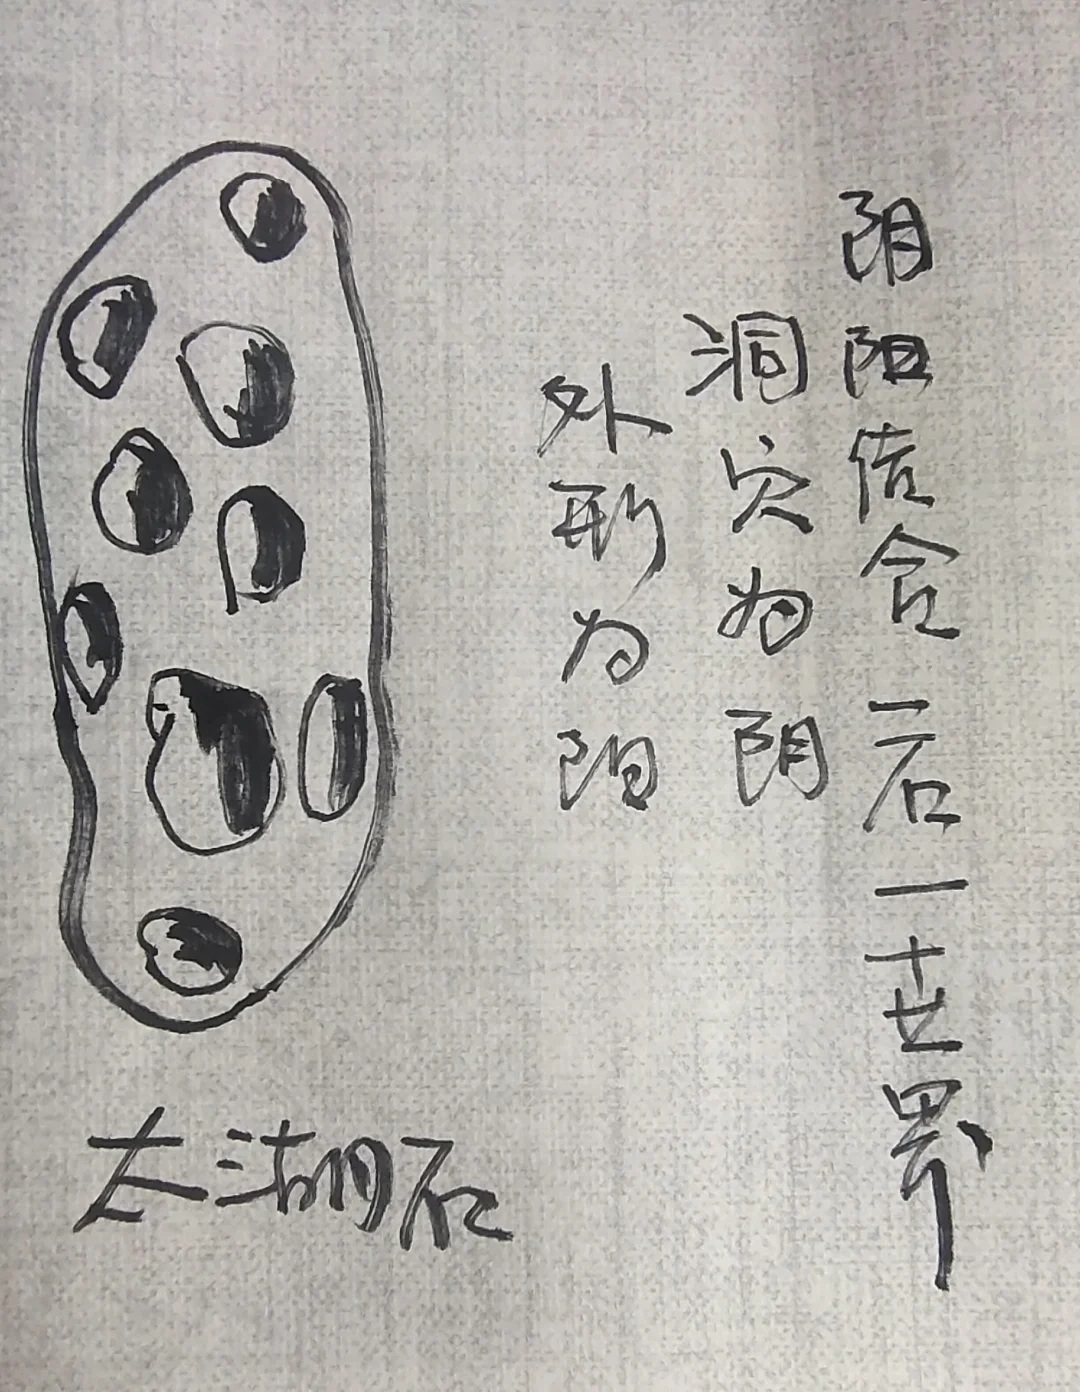 阴阳结合一石一世界
洞穴为阴
外形为阳
太湖石